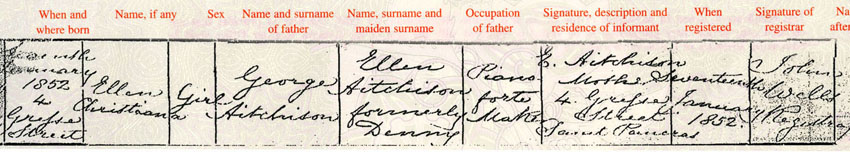 When and where born
Name, if any
Sex
Name and surname of father
Name, surname and maiden surname
Occupation of father
Signature, description and residence of informant
When registered
Signature of registrar
Na
after
January
1852
4
Gresse
Street
Ellen
Christiana
Girl
George
Aitchison
Ellen
Aitchison
formerly
Denny
Piano
forte
Maker
E. Aitchison
Mother
4. Gresse
Street
Saint Pancras
Seventeenth
January
1852.
John
Wells
Registrar